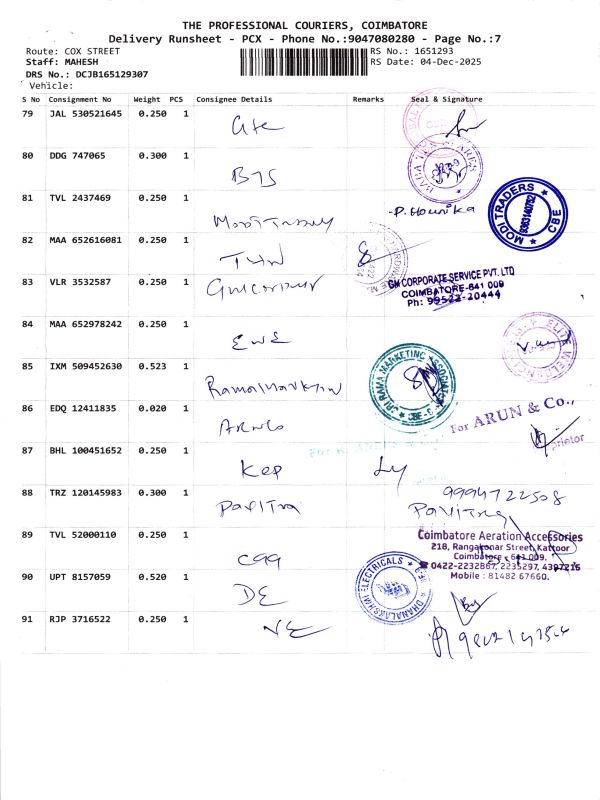 THE PROFESSIONAL COURIERS, COIMBATORE
Delivery Runsheet - PCX - Phone No.:9047080280 - Page No.:7
Route: COX STREET RS No.: 1651293
Staff: MAHESH RS Date: 04-Dec-2025
DRS No.: DCJB165129307
Vehicle:
S No Consignment No Weight PCS Consignee Details Remarks Seal & Signature
79 JAL 530521645 0.250 1
80 DDG 747065 0.300 1
BTS
81 TVL 2437469 0.250 1
-P. Mounika
MODI TRADERS CBE
82 MAA 652616081 0.250 1
83 VLR 3532587 0.250 1
GM CORPORATE SERVICE PVT. LTD
COIMBATORE-641 009
Ph: 99522-20444
84 MAA 652978242 0.250 1
EWE
85 IXM 509452630 0.523 1
SRI RAMA MARKETING
86 EDQ 12411835 0.020 1
For ARUN & Co.,
87 BHL 100451652 0.250 1
KCP
88 TRZ 120145983 0.300 1
Pavitra
9994722508
Pavitra
89 TVL 52000110 0.250 1
Coimbatore Aeration Accessories
218, Rangakonar Street, Kattoor
Coimbatore - 641 009.
0422-2232867, 2235297, 4397215
Mobile : 81482 67660.
90 UPT 8157059 0.520 1
DE
DHANALAKSHMI ELECTRICALS
91 RJP 3716522 0.250 1
VE